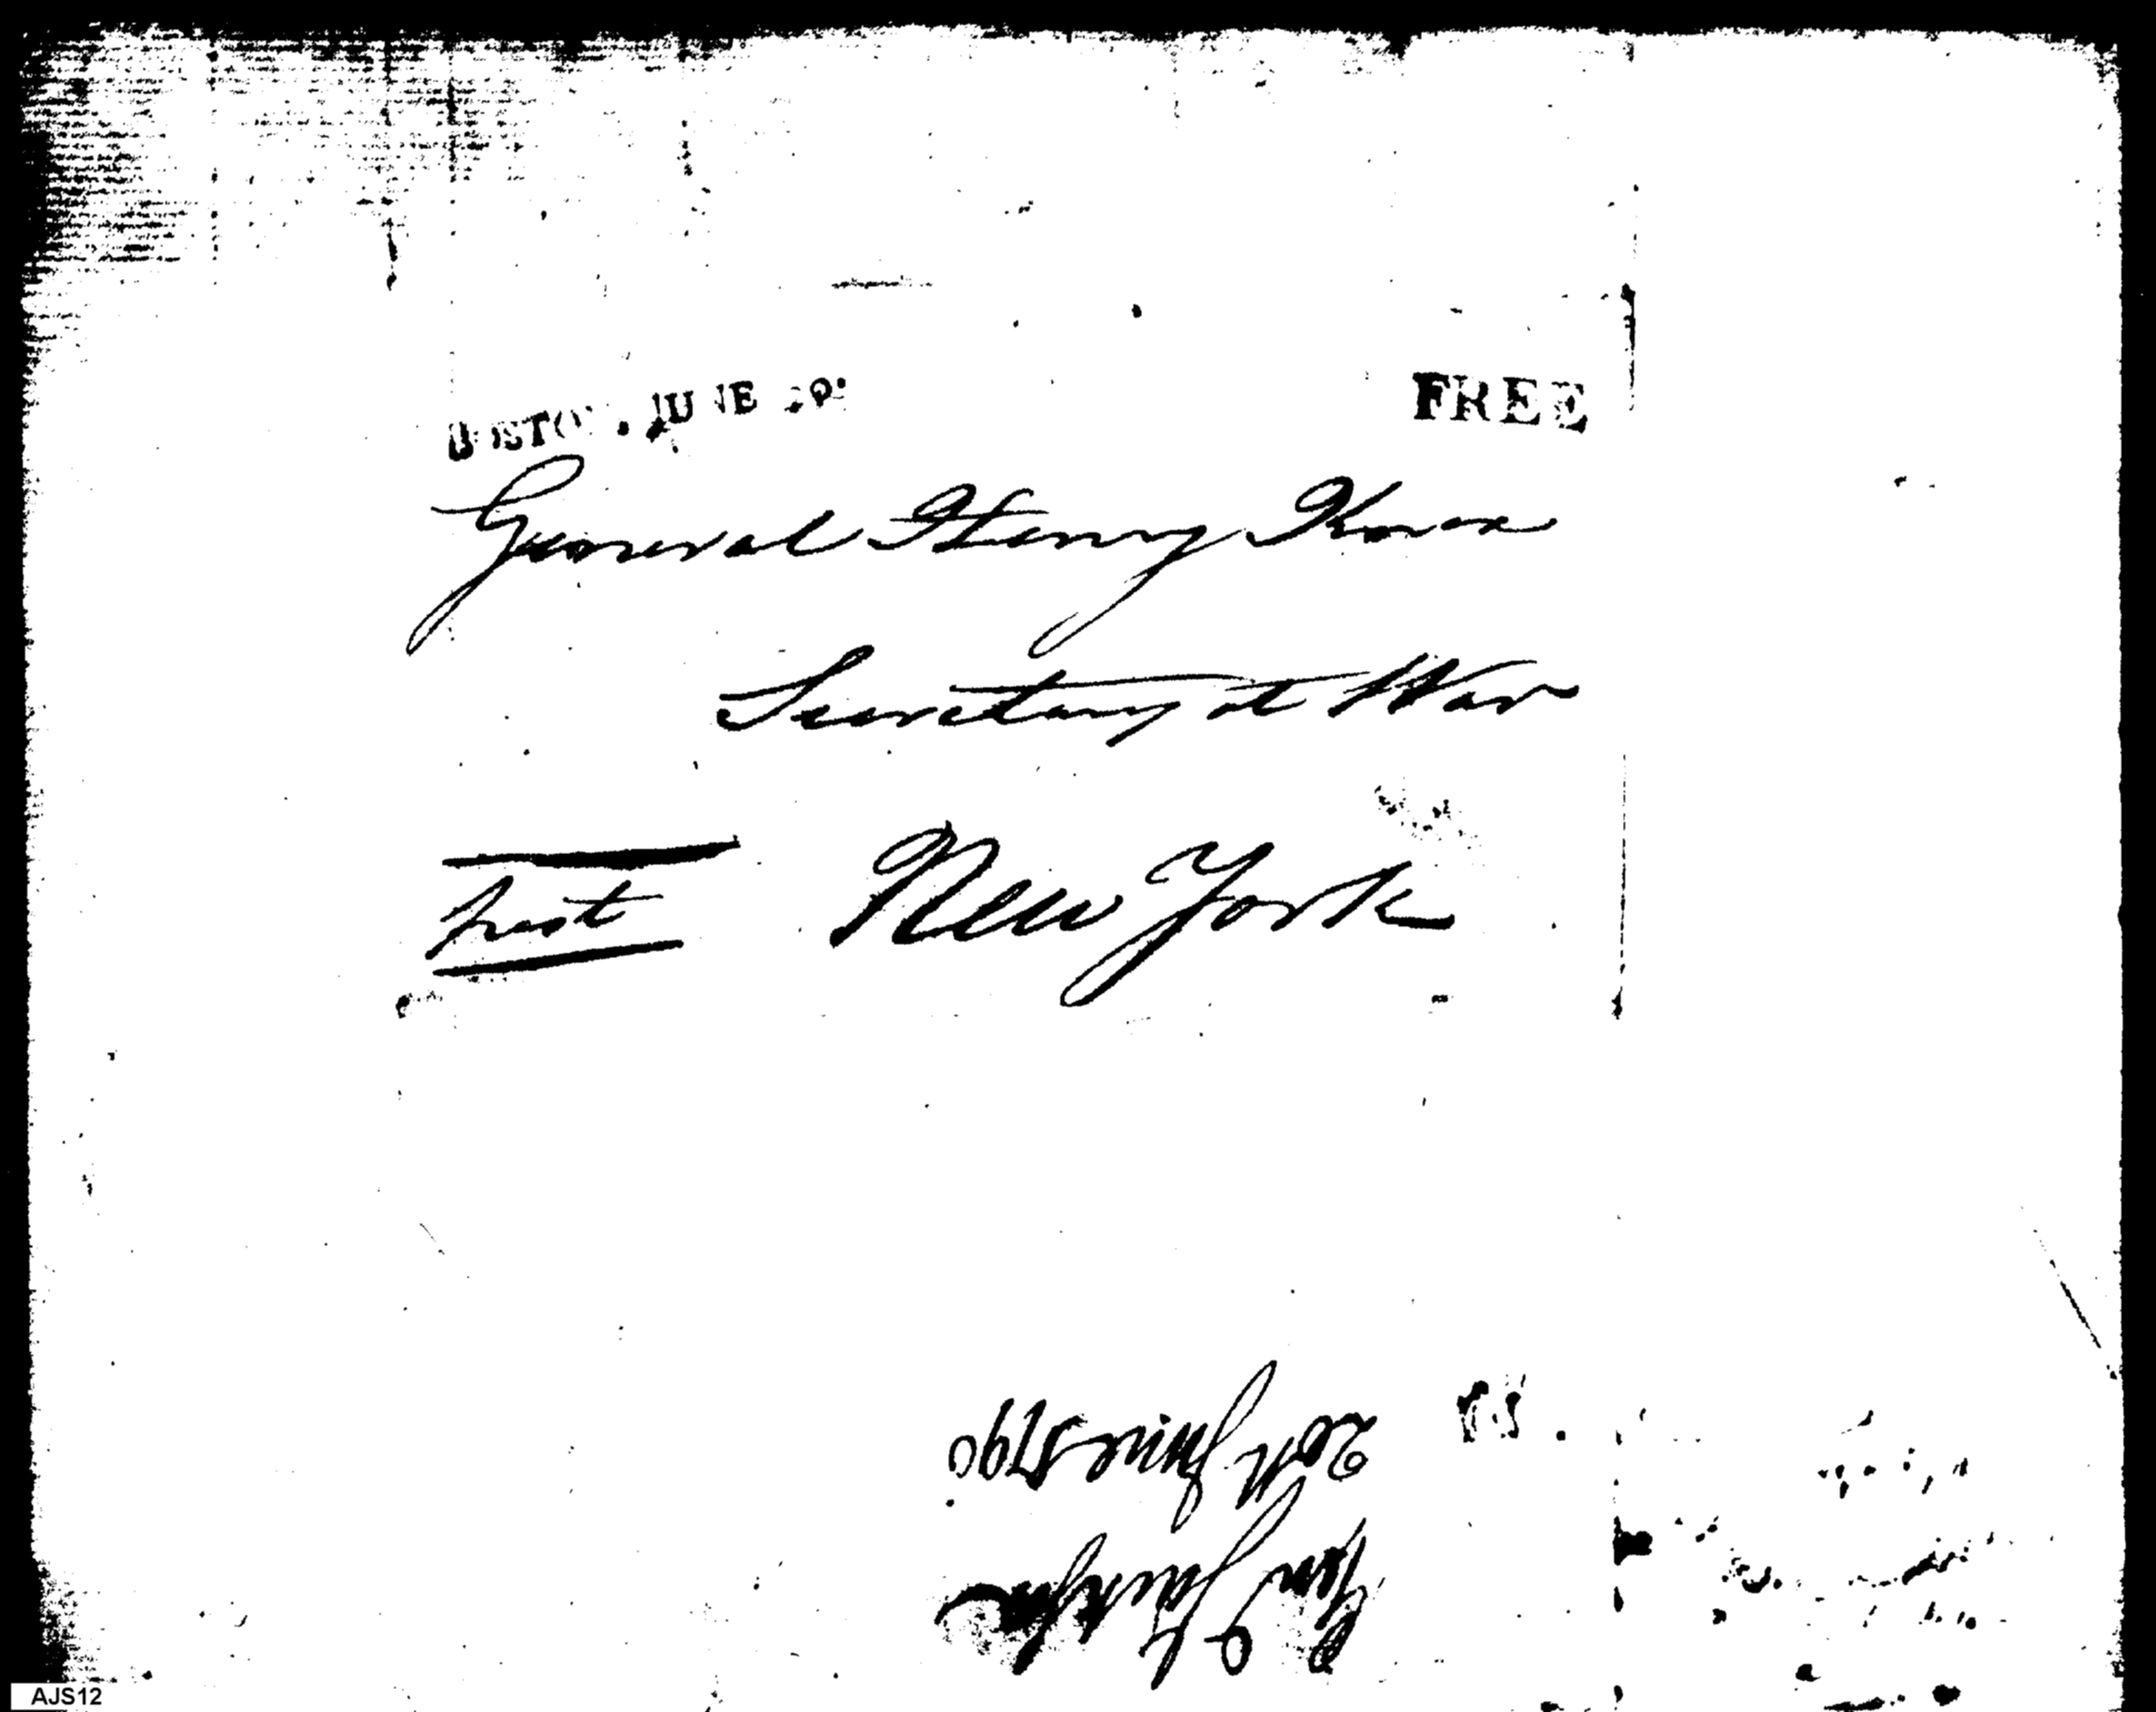 BOSTON. JUNE
FREE
General Henry Knox
Secretary at War
New York
post
20th June 1790
Genl Jackson
AJS12